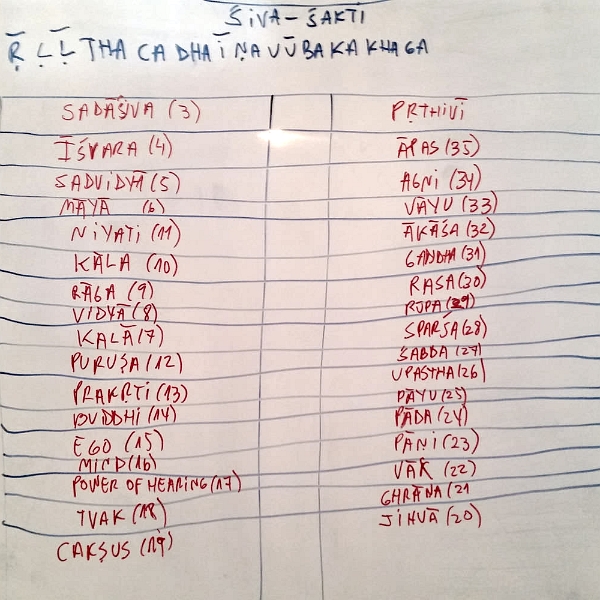 ŚIVA-ŚAKTI
Ṝ Ḷ Ḹ THA CA DHA Ī ṆA U Ū BA KA KHA GA
SADĀŚIVA (3) PṚTHIVĪ
ĪŚVARA (4) ĀPAS (35)
SADVIDYĀ (5) AGNI (34)
MĀYĀ (6) VĀYU (33)
NIYATI (11) ĀKĀŚA (32)
KĀLA (10) GANDHA (31)
RĀGA (9) RASA (30)
VIDYĀ (8) RŪPA (29)
KALĀ (7) SPARŚA (28)
PURUṢA (12) ŚABDA (27)
PRAKṚTI (13) UPASTHA (26)
BUDDHI (14) PĀYU (25)
EGO (15) PĀDA (24)
MIND (16) PĀṆI (23)
POWER OF HEARING (17) VĀK (22)
TVAK (18) GHRĀṆA (21
CAKṢUS (19) JIHVĀ (20)